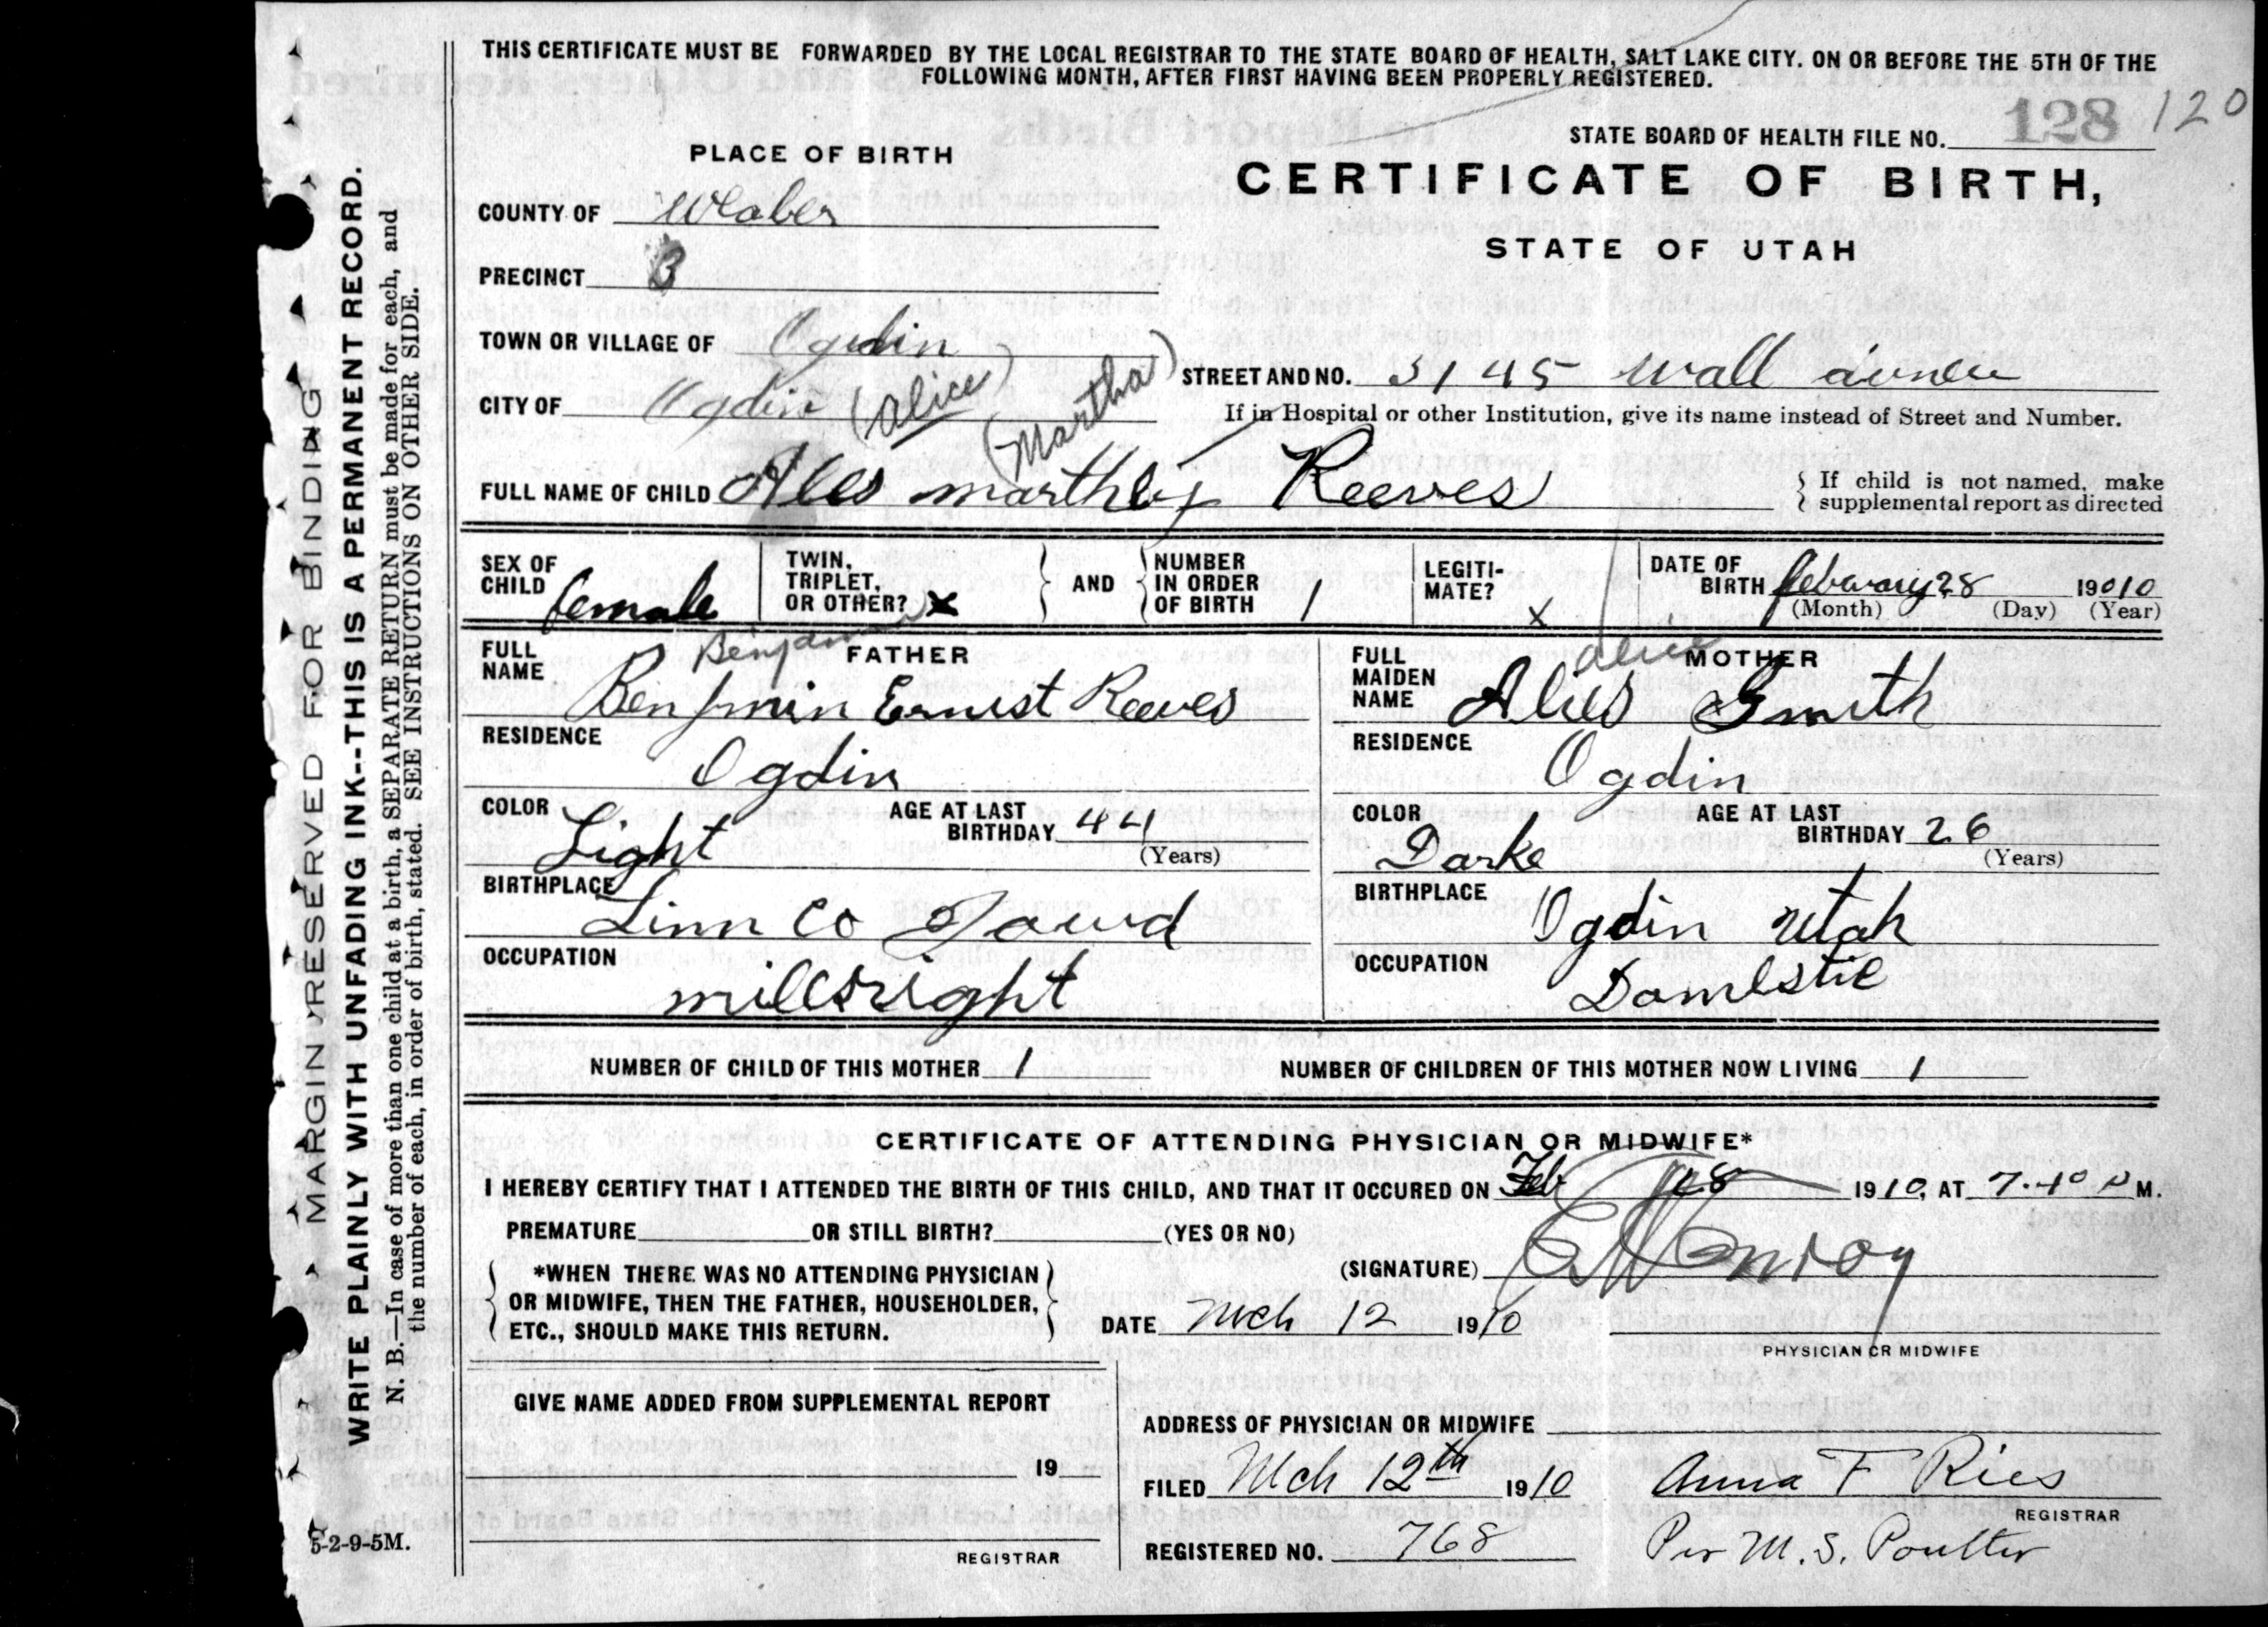 THIS CERTIFICATE MUST BE FORWARDED BY THE LOCAL REGISTRAR TO THE STATE BOARD OF HEALTH, SALT LAKE CITY. ON OR BEFORE THE 5TH OF THE
FOLLOWING MONTH, AFTER FIRST HAVING BEEN PROPERLY REGISTERED.
STATE BOARD OF HEALTH FILE NO. 128 120
PLACE OF BIRTH
CERTIFICATE OF BIRTH,
STATE OF UTAH
COUNTY OF Weaber
PRECINCT
TOWN OR VILLAGE OF Ogdin
CITY OF Ogdin (Alice) (Martha)
STREET AND NO. 3145 Wall
If in Hospital or other Institution, give its name instead of Street and Number.
FULL NAME OF CHILD Ales marthey Reeves
{ If child is not named, make
supplemental report as directed
SEX OF CHILD female
TWIN, TRIPLET, OR OTHER? X
AND
NUMBER IN ORDER OF BIRTH 1
LEGITI-MATE? X
DATE OF BIRTH febuary 28 19010
(Month) (Day) (Year)
FATHER
FULL NAME Benjamin
Benjmin Ernest Reeves
RESIDENCE
Ogdin
COLOR Light
AGE AT LAST BIRTHDAY 44
(Years)
BIRTHPLACE
Linn Co
OCCUPATION
millsright
MOTHER
FULL MAIDEN NAME Alice
Alies Smith
RESIDENCE
Ogdin
COLOR Darke
AGE AT LAST BIRTHDAY 26
(Years)
BIRTHPLACE
Ogdin Utah
OCCUPATION
Domestic
NUMBER OF CHILD OF THIS MOTHER 1
NUMBER OF CHILDREN OF THIS MOTHER NOW LIVING 1
CERTIFICATE OF ATTENDING PHYSICIAN OR MIDWIFE*
I HEREBY CERTIFY THAT I ATTENDED THE BIRTH OF THIS CHILD, AND THAT IT OCCURED ON Feb 28 1910, AT 7.40 P M.
PREMATURE OR STILL BIRTH? (YES OR NO)
*WHEN THERE WAS NO ATTENDING PHYSICIAN
OR MIDWIFE, THEN THE FATHER, HOUSEHOLDER,
ETC., SHOULD MAKE THIS RETURN.
(SIGNATURE)
DATE Mch 12 1910
PHYSICIAN OR MIDWIFE
GIVE NAME ADDED FROM SUPPLEMENTAL REPORT
19
REGISTRAR
ADDRESS OF PHYSICIAN OR MIDWIFE
FILED Mch 12th 1910 Anna F Ries
REGISTRAR
REGISTERED NO. 768 Per M. S. Poulter
MARGIN RESERVED FOR BINDING
WRITE PLAINLY WITH UNFADING INK--THIS IS A PERMANENT RECORD.
N. B.—In case of more than one child at a birth, a SEPARATE RETURN must be made for each, and
the number of each, in order of birth, stated. SEE INSTRUCTIONS ON OTHER SIDE.
5-2-9-5M.